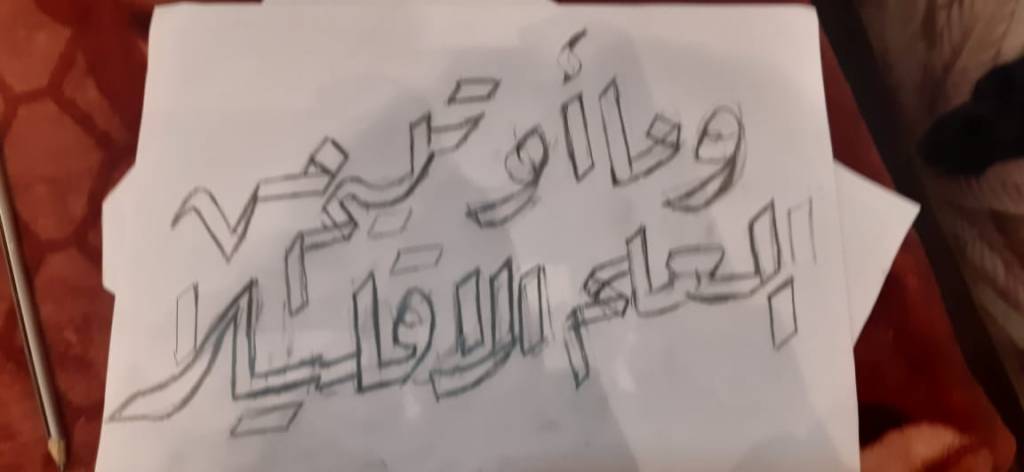 وما أوتيتم من
العلم إلا قليلا